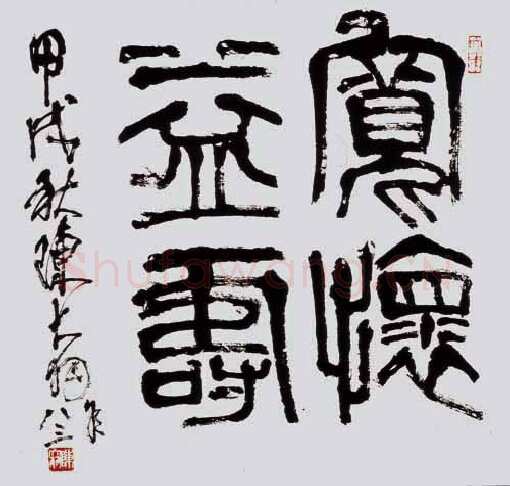 寬懷
益壽
甲戌秋陳大羽
年八三
Shufawang.CN